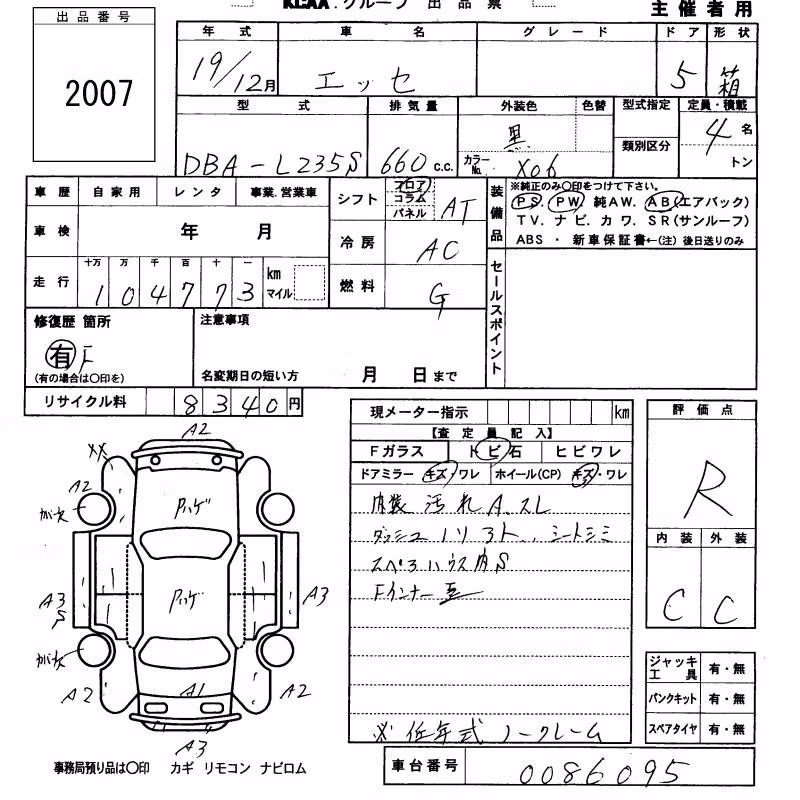 KLAA.グループ 出品票
主催者用
出品番号
2007
年式 車名 グレード ドア 形状
19/12月 エッセ 5 箱
型式 排気量 外装色 色替 型式指定 定員・積載
類別区分
DBA-L235S 660 c.c. 黒 カラーNo. X06 4 名
トン
車歴 自家用 レンタ 事業.営業車
車検 年 月
走行 十万 万 千 百 十 一
104773 km マイル
シフト フロア コラム パネル AT
冷房 AC
燃料 G
装備品
※純正のみ〇印をつけて下さい。
PS. PW 純AW. AB(エアバック)
TV. ナビ. カワ. SR(サンルーフ)
ABS ・ 新車保証書←(注) 後日送りのみ
セールスポイント
修復歴 箇所
有 F
(有の場合は〇印を)
注意事項
名変期日の短い方 月 日まで
リサイクル料 8340円
現メーター指示 km
【査定員記入】
Fガラス トビ石 ヒビワレ
ドアミラー キズ・ワレ ホイール(CP) キズ・ワレ
内装 汚れ A. スレ
ダッシュ ノリ 3ト、シートシミ
スペアハウス内S
Fインナー
※ 低年式 ノークレーム
評価点
R
内装 外装
C C
ジャッキ工具 有・無
パンクキット 有・無
スペアタイヤ 有・無
車台番号 0086095
A2
XX
A2
ガキズ
Pハゲ
Pハゲ
A3
S
A3
ガキズ
A2
A1
A2
A3
事務局預り品は〇印 カギ リモコン ナビロム